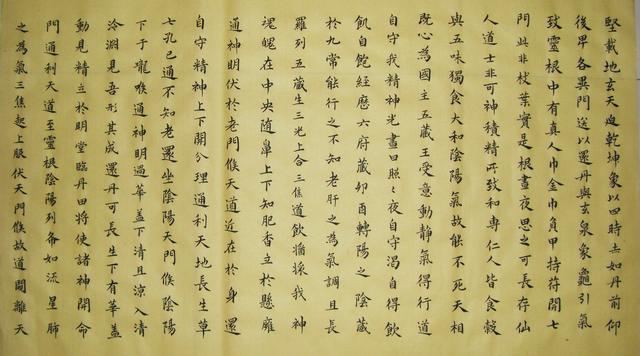 堅載地玄天迫乾坤象以四時赤如丹前仰
後卑各異門送以還丹與玄泉象龜引氣
致靈根中有真人巾金巾負甲持符開七
門此非枝葉實是根晝夜思之可長存仙
人道士非可神積精所致和專仁人皆食穀
與五味獨食大和陰陽氣故能不死天相
既心為國主五藏王受意動靜氣得行道
自守我精神光晝日照〻夜自守渴自得飲
飢自飽經歷六府藏卯酉轉陽之陰藏
於九常能行之不知老肝之為氣調且長
羅列五藏生三光上合三焦道飲我神
魂魄在中央隨鼻上下知肥香立於懸膺
通神明伏於老門候天道近在於身還
自守精神上下開分理通利天地長生草
七孔已通不知老還坐陰陽天門候陰陽
下于嚨喉通神明過華蓋下清且涼入清
泠淵見吾形其成還丹可長生下有華蓋
動見精立於明堂臨丹田將使諸神開命
門通利天道至靈根陰陽列布如流星肺
之為氣三焦起上服伏天門候故道闚離天